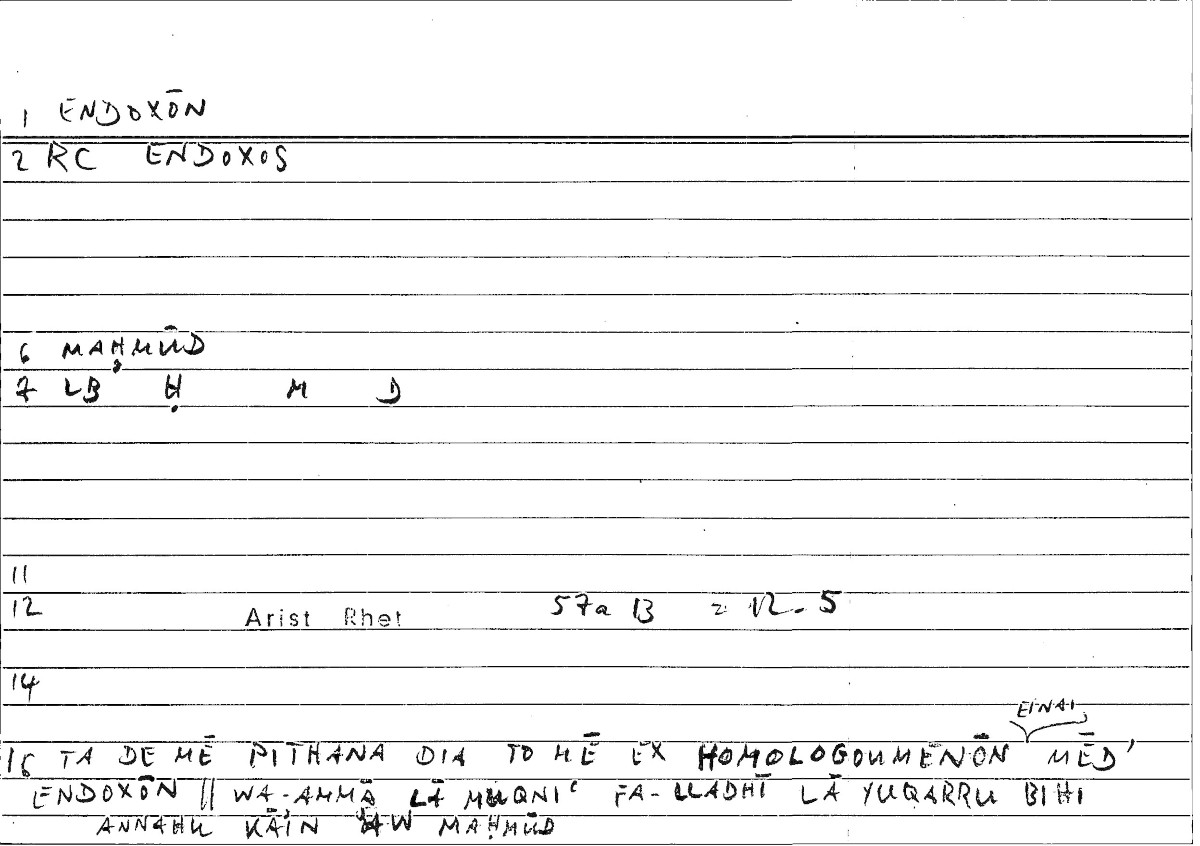 1 ENDOXŌN
2 RC ENDOXOS
6 MAḤMŪD
7 LB Ḥ M D
11
12 Arist Rhet 57a 13 = 12.5
14
EINAI
16 TA DE MĒ PITHANA DIA TO MĒ EX HOMOLOGOUMENŌN MĒD'
ENDOXŌN || WA-AMMĀ LĀ MUQNIʿ FA-LLADHĪ LĀ YUQARRU BIHI
ANNAHU KĀIN AW MAḤMŪD